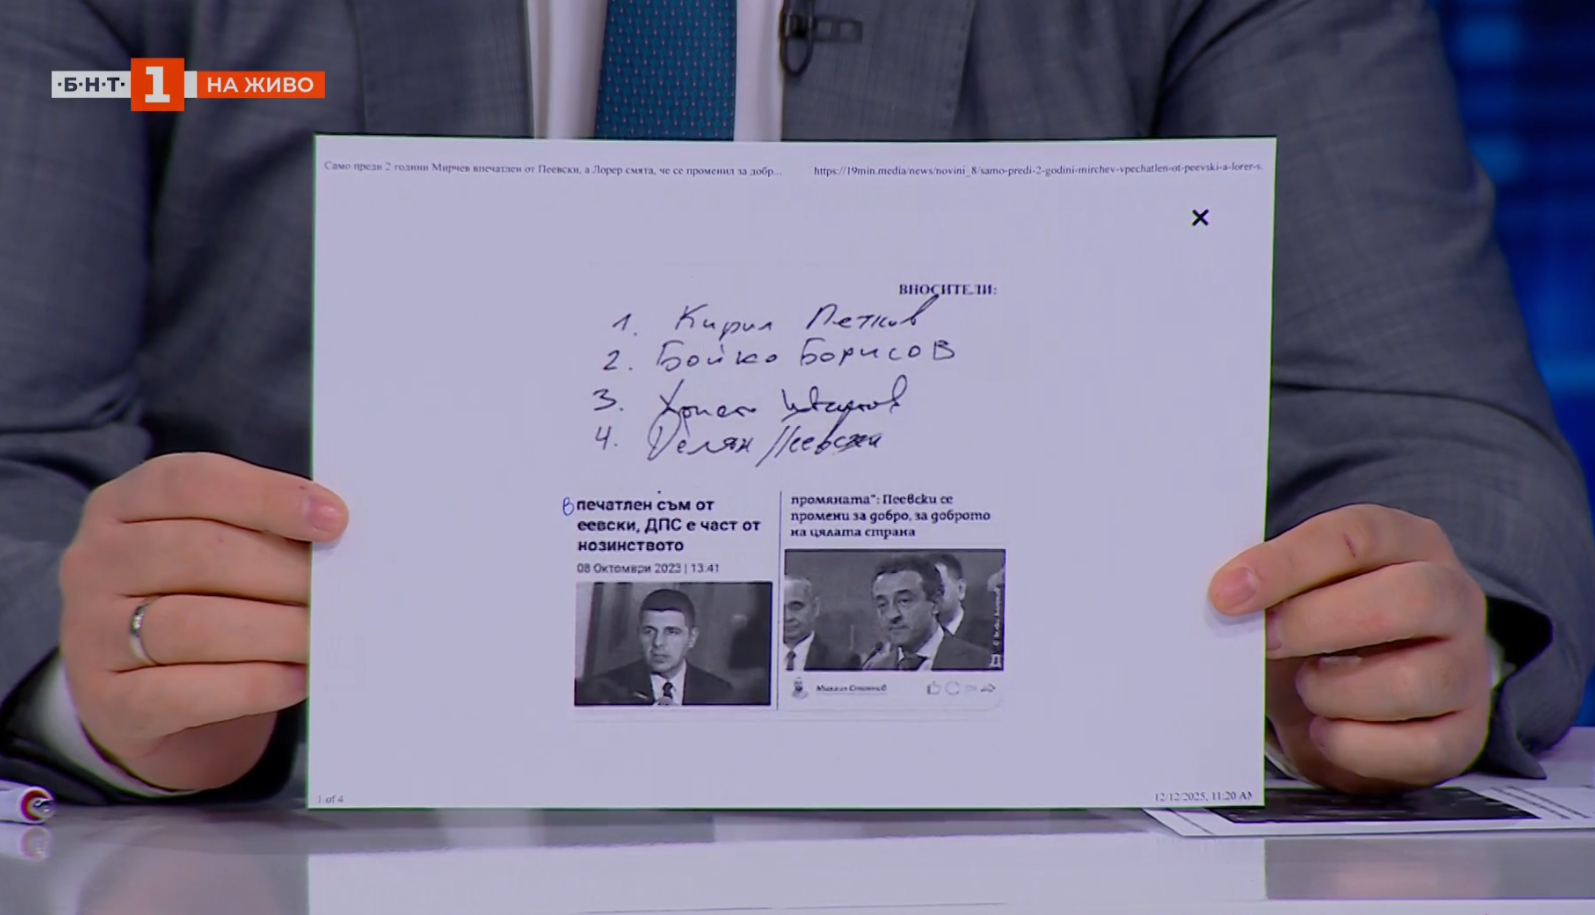 ·Б·Н·Т· 1 НА ЖИВО
Само преди 2 години Мирчев впечатлен от Пеевски, а Лорер смята, че се променил за добр...
https://19min.media/news/novini_8/samo-predi-2-godini-mirchev-vpechatlen-ot-peevski-a-lorer-s.
×
ВНОСИТЕЛИ:
1. Кирил Петков
2. Бойко Борисов
3. Христо Иванов
4. Делян Пеевски
Впечатлен съм от
еевски, ДПС е част от
нозинството
08 Октомври 2023 | 13:41
промяната": Пеевски се
промени за добро, за доброто
на цялата страна
1 of 4
12/12/2025, 11:20 AM